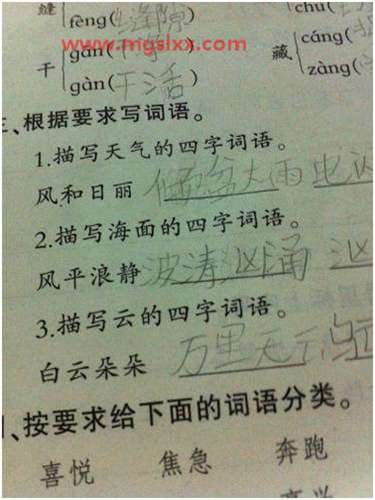 缝 fèng(缝隙) chǔ(
www.mgslxx.com
干 gān( 藏 cáng(
gàn(干活) zàng(
三、根据要求写词语。
1.描写天气的四字词语。
风和日丽 倾盆大雨 电闪
2.描写海面的四字词语。
风平浪静 波涛汹涌 汹
3.描写云的四字词语。
白云朵朵 万里无云 乌云
、按要求给下面的词语分类。
喜悦 焦急 奔跑
高兴